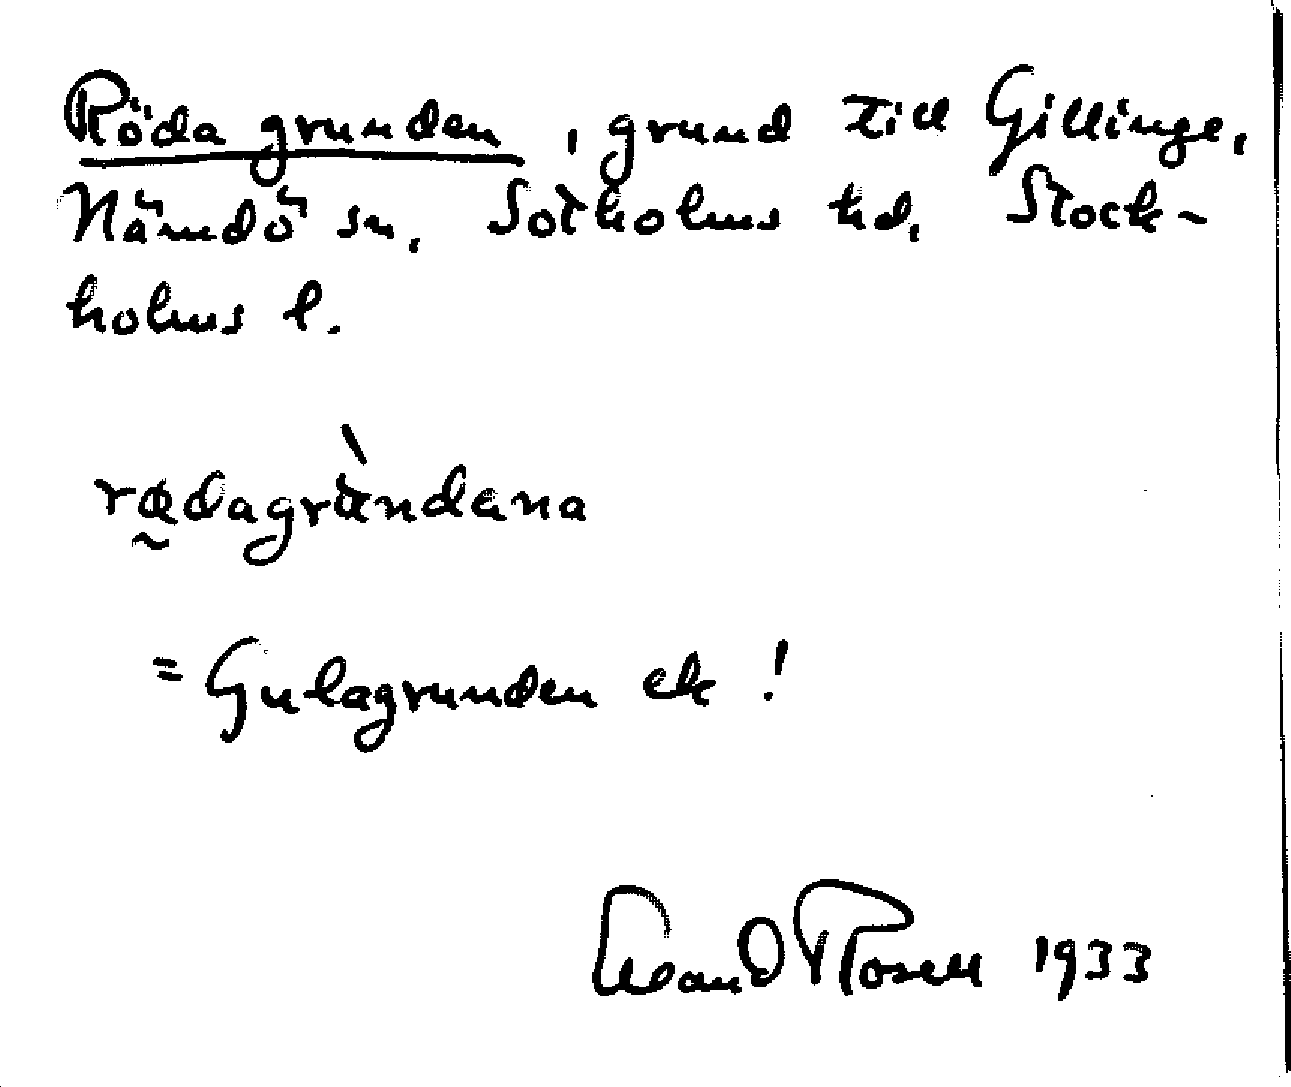 Röda grunden, grund till Gillinge,
Nämdö sn, Sotholms hd, Stock-
holms l.
rødagrùndana
= Gulagrunden ek !
Rosell 1933